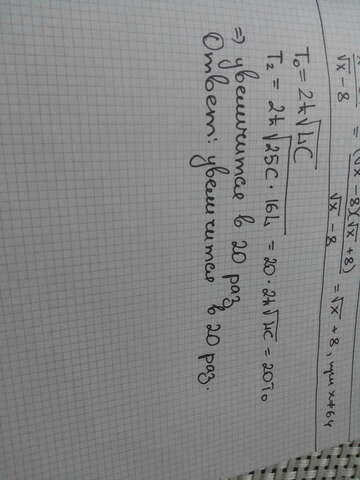 √x − 8 = (√x − 8)(√x + 8) / √x − 8 = √x + 8, при x ≠ 64
T₀ = 2π√LC
T₂ = 2π√25C · 16L = 20 · 2π√LC = 20T₀
⇒ увеличится в 20 раз
Ответ: увеличится в 20 раз.